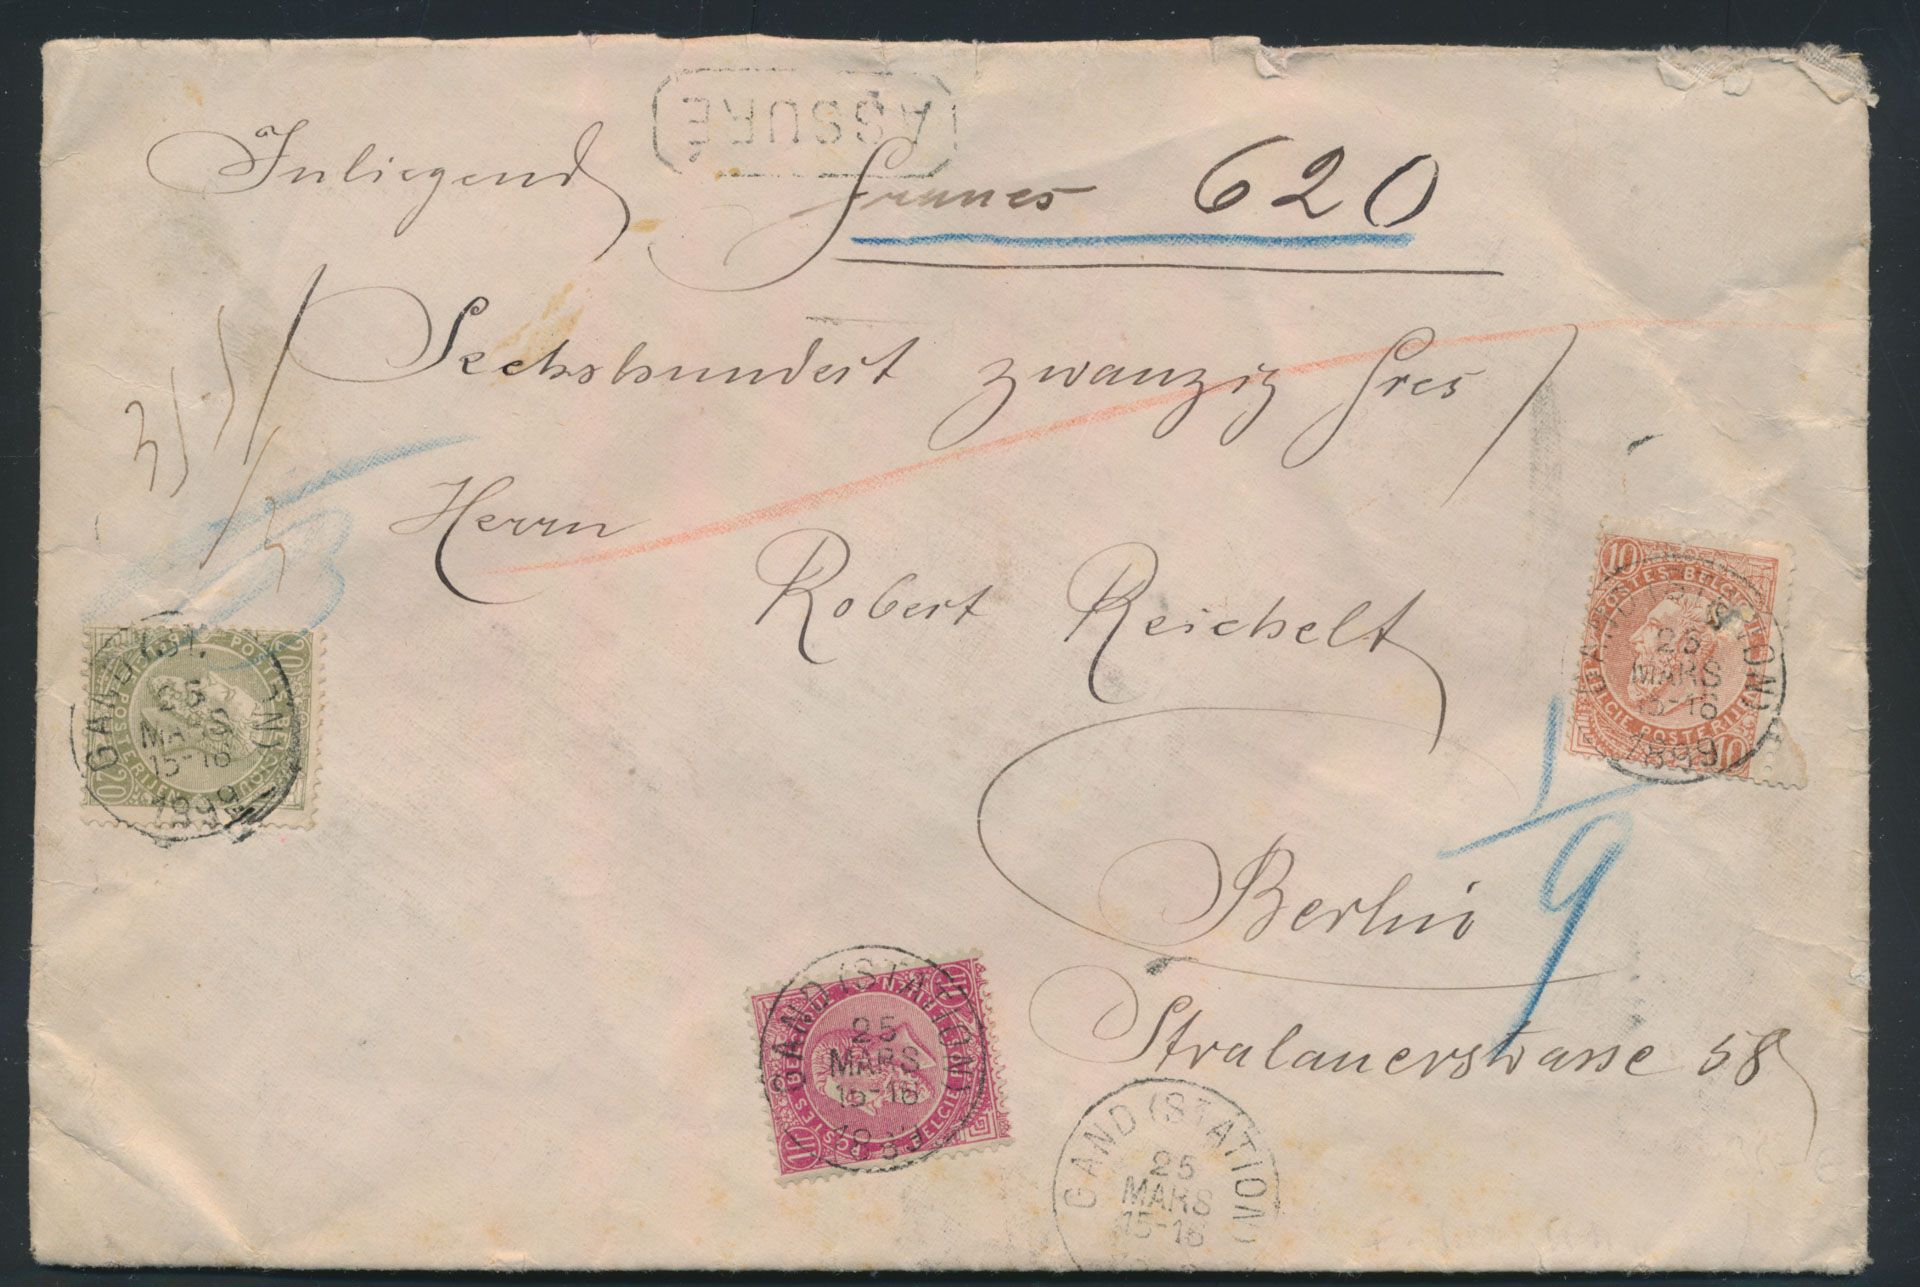 ASSURÉ
Inliegend francs 620
Sechshundert zwanzig frcs
Herrn
Robert Reichelt
Berlin
Stralauerstrasse 58
1/9
20 POSTES BELGIQUE 20
20 POSTERIJEN
GAND (STATION)
25
MARS
15-16
1899
10 POSTES BELGIQUE
BELGIE POSTERIJEN 10
GAND (STATION)
25
MARS
15-16
1899
10 BELGIË POSTERIJEN 10
10 POSTES BELGIQUE
GAND (STATION)
25
MARS
15-16
1899
GAND (STATION)
25
MARS
15-16